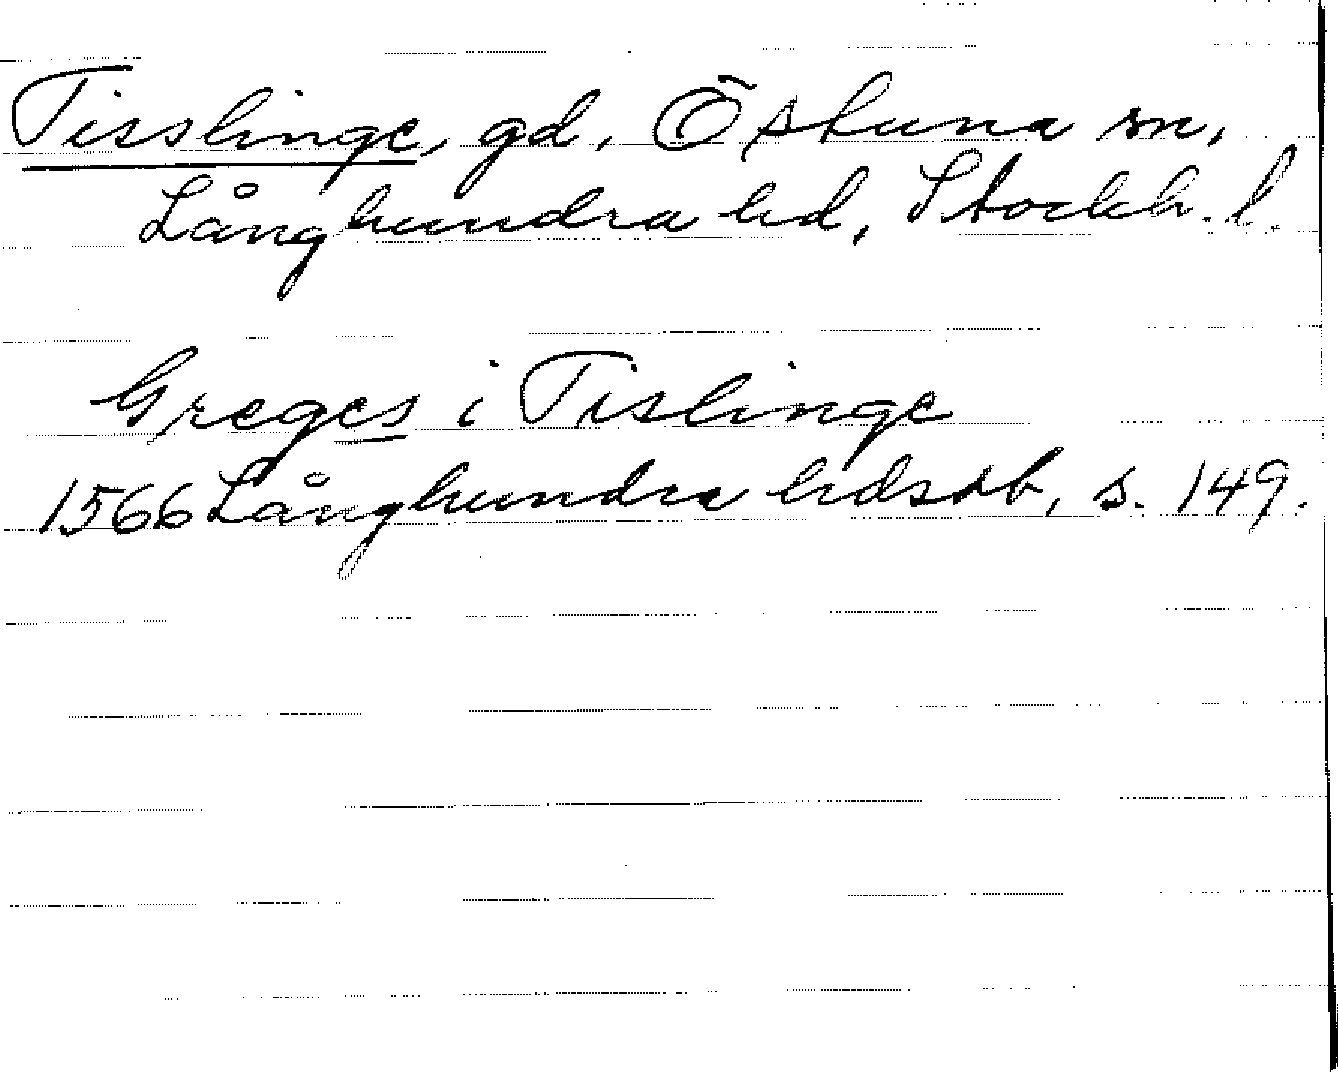 Tisslinge, gd, Östuna sn,
Långhundra hd, Stockh. l.
Greges i Tislinge
1566 Långhundra hdsdb, s. 149.